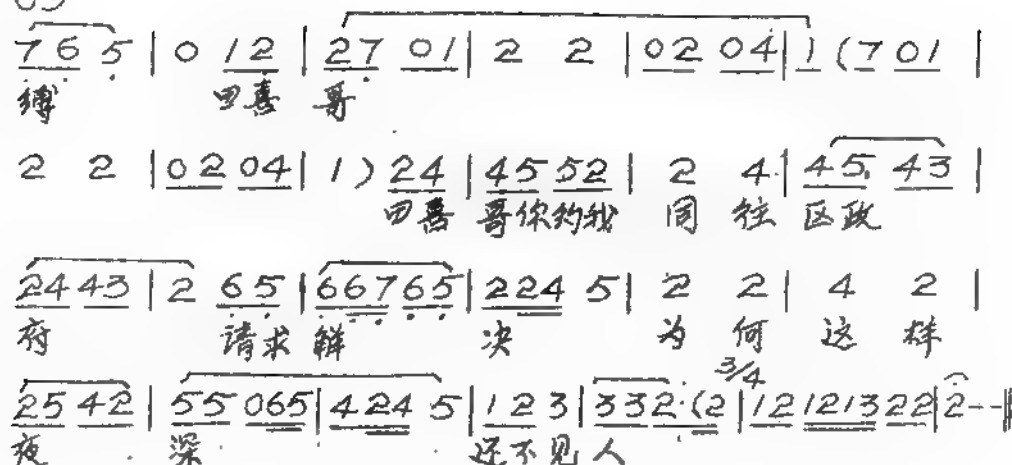 7 6 5 | 0 12 | 27 01 | 2 2 | 02 04 | 1 (7 01 |
缚 田喜 哥
2 2 | 02 04 | 1 ) 24 | 45 52 | 2 4 | 45. 43 |
田喜 哥你约我 同 往 区政
24 43 | 2 65 | 66765 | 224 5 | 2 2 | 4 2 |
府 请求 解 决 为 何 这 样
3/4
25 42 | 55 065 | 424 5 | 12 3 | 332. (2 | 12 1213 22 | 2 - - ||
夜 深 还不见人